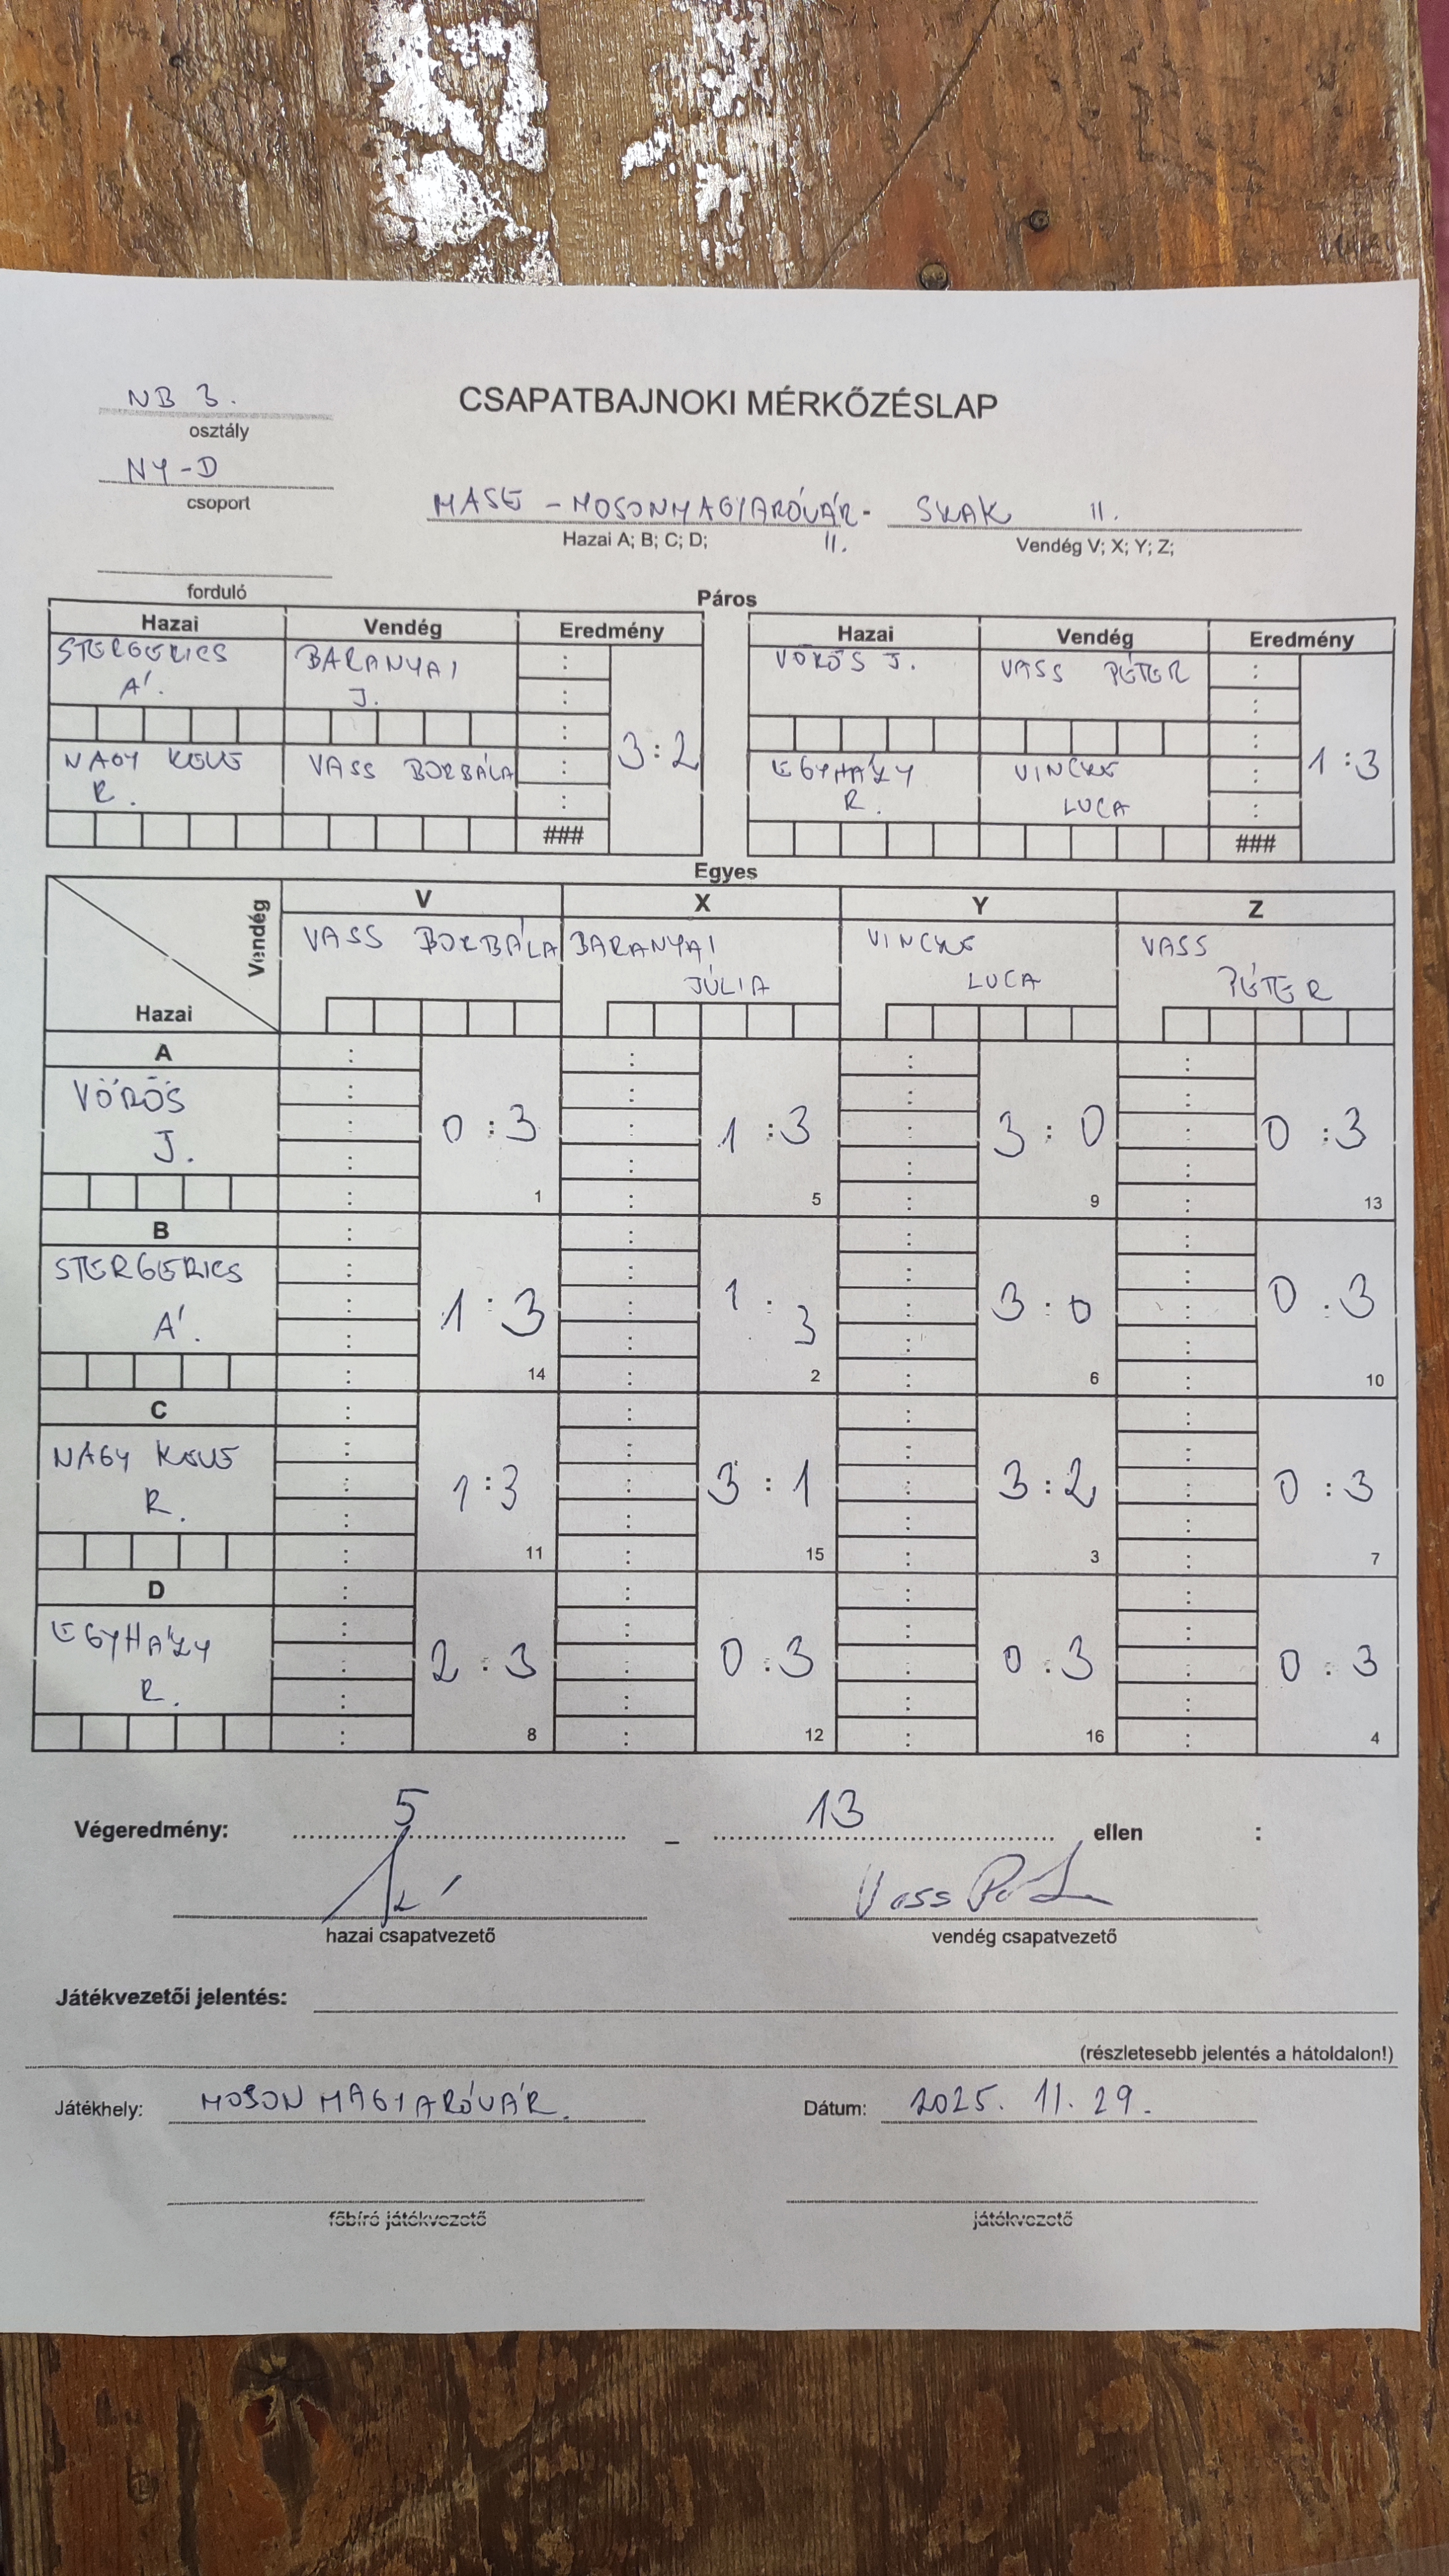 NB 3.
osztály
CSAPATBAJNOKI MÉRKŐZÉSLAP
NY-D
csoport
MASE - MOSONMAGYARÓVÁR - SKAK II.
Hazai A; B; C; D; II. Vendég V; X; Y; Z;
forduló
Páros
Hazai Vendég Eredmény Hazai Vendég Eredmény
STERGERICS BARANYAI : VÖRÖS J. VASS PÉTER :
Á. J. : :
: :
3:2 1:3
NAGY KEVE VASS BORBÁLA : EGYHÁZY VINCZE :
R. : R. LUCA :
### ###
Egyes
Vendég V X Y Z
VASS BORBÁLA BARANYAI VINCZE VASS
JÚLIA LUCA PÉTER
Hazai
A
VÖRÖS
J.
0:3 1:3 3:0 0:3
1 5 9 13
B
STERGERICS
Á.
1:3 1:3 3:0 0:3
14 2 6 10
C
NAGY KEVE
R.
1:3 3:1 3:2 0:3
11 15 3 7
D
EGYHÁZY
R.
2:3 0:3 0:3 0:3
8 12 16 4
Végeredmény: 5 – 13 ellen :
Vass
hazai csapatvezető vendég csapatvezető
Játékvezetői jelentés:
(részletesebb jelentés a hátoldalon!)
Játékhely: MOSONMAGYARÓVÁR. Dátum: 2025. 11. 29.
főbíró játékvezető játékvezető